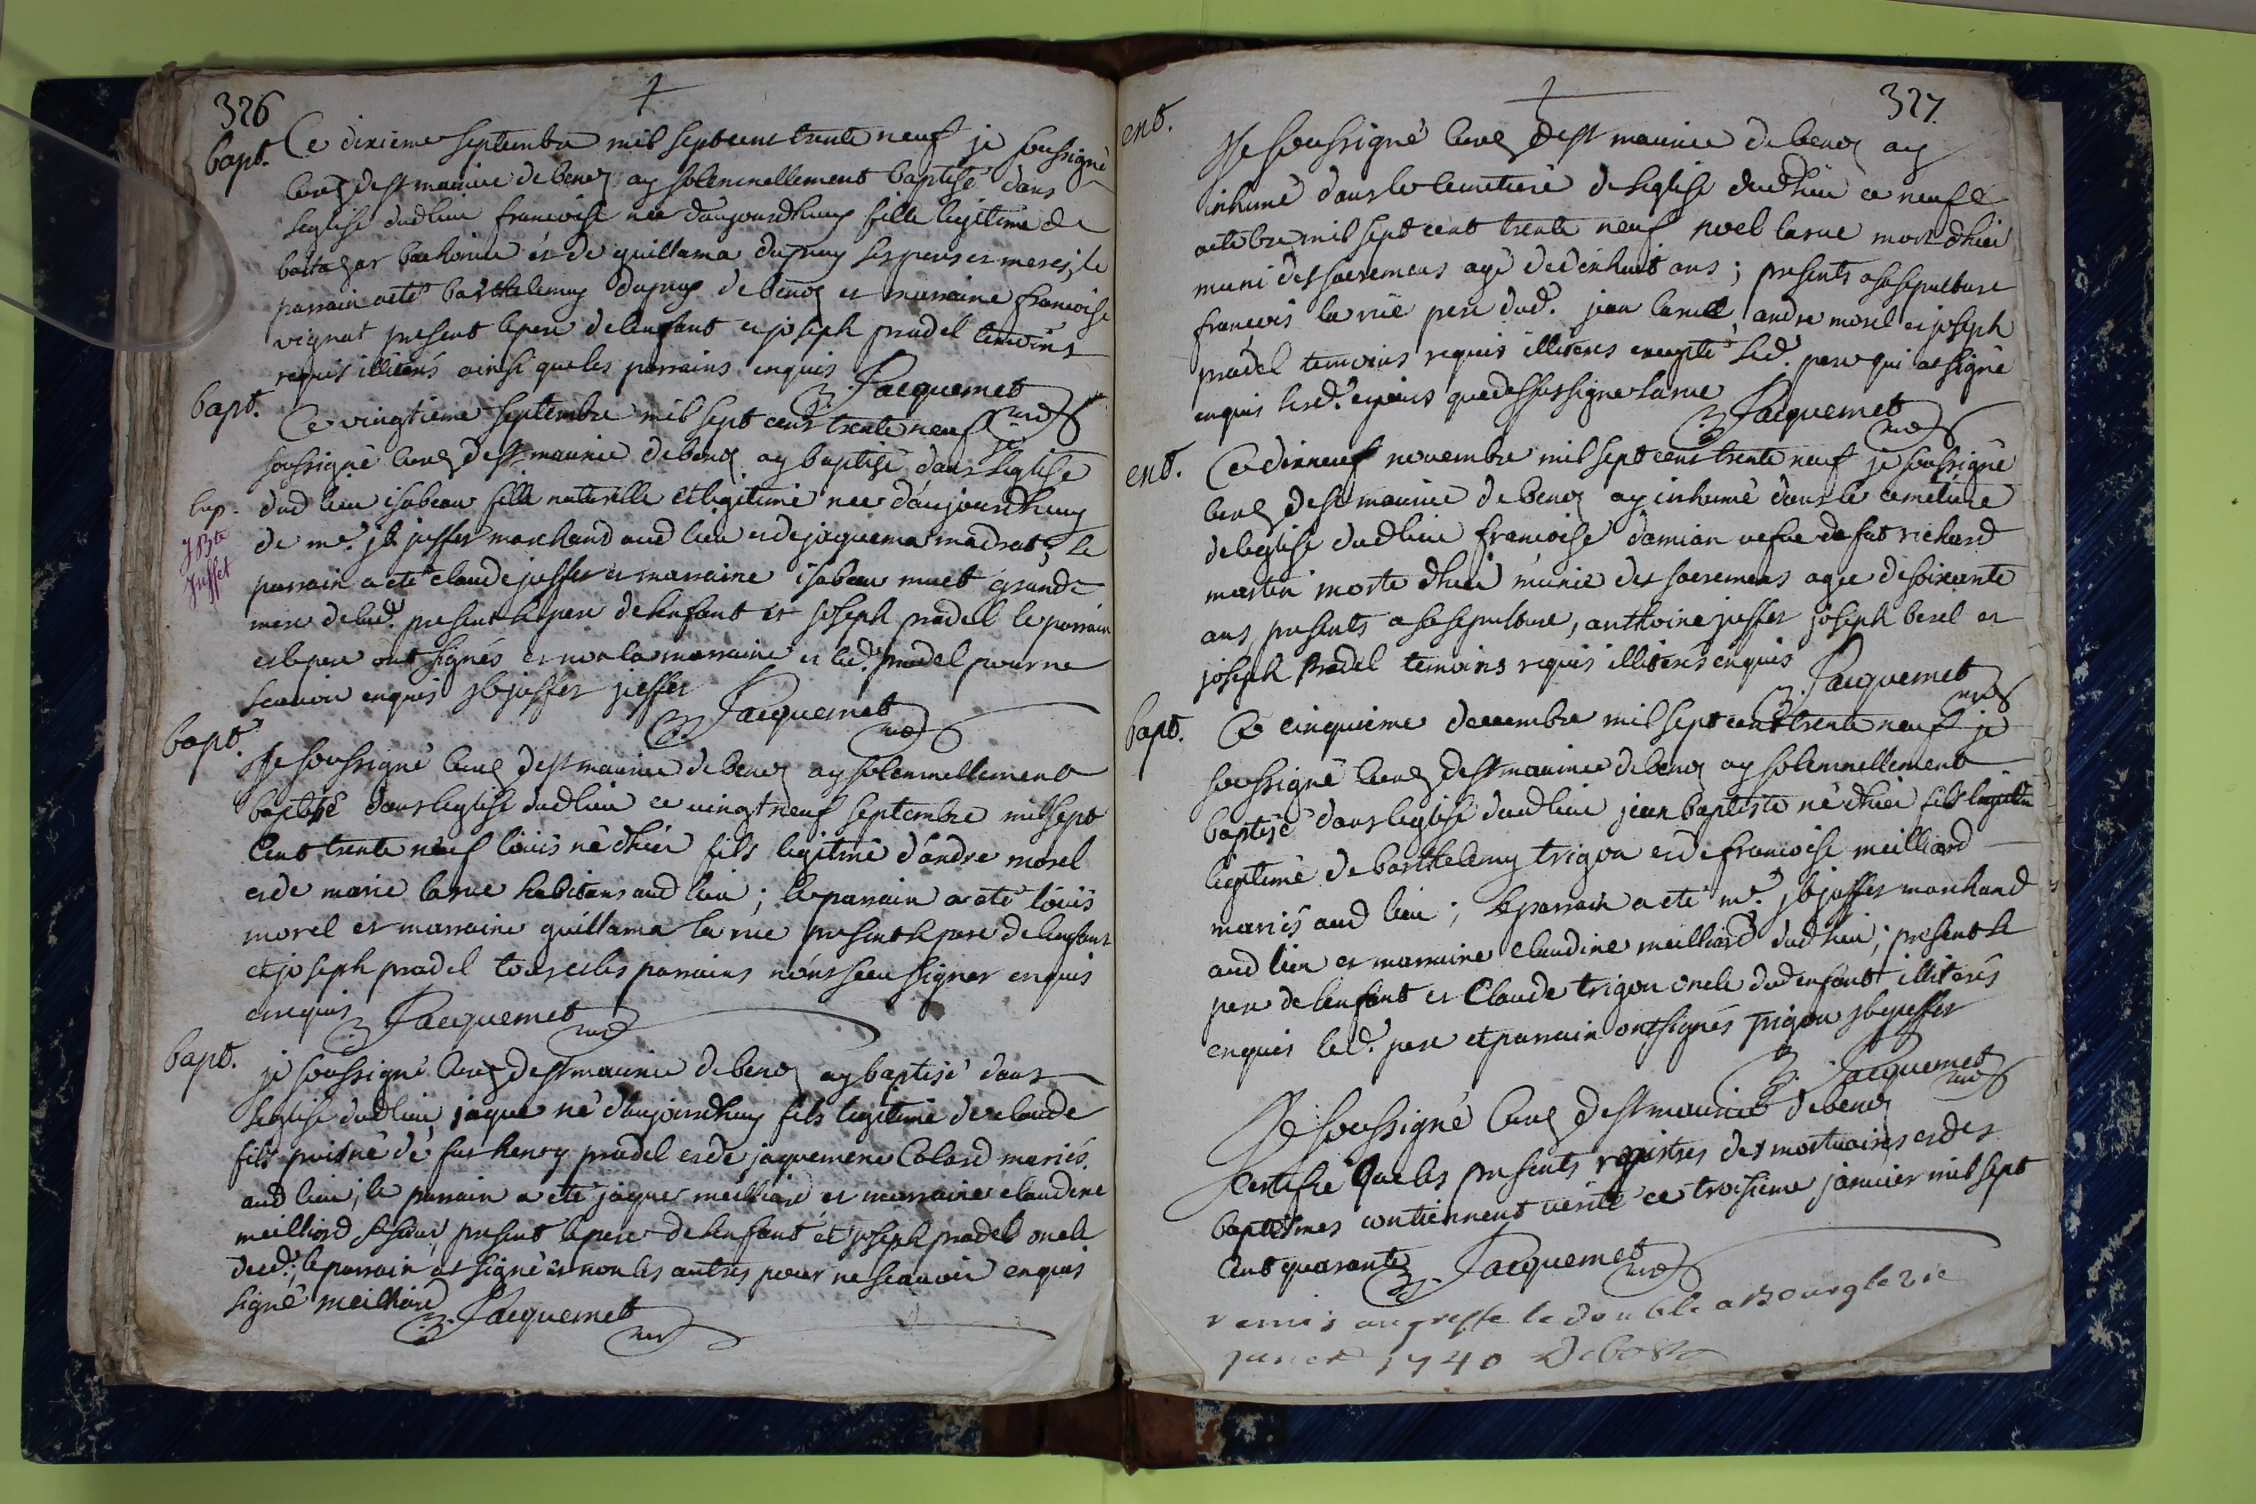 326
bapt. Ce dixieme septembre mil sept cens trente neuf je soussigné
curé de st maurice de benoz ay solemnellement baptisé dans
l'eglise dud lieu francoise née d'aujourdhuy fille legitime de
baltazar et de guillama dupuy ses peres et meres; le
parrain a eté barthelemy dupuy de benoz et marraine francoise
vignat present le pere de lenfant et joseph pradel temoins
requis illiterés ainsi que les parrains enquis
Jacquemet curé
bapt. Ce vingtieme septembre mil sept cens trente neuf je
soussigné curé de st maurice de benoz ay baptisé dans l'eglise
bap. J Bte Juffet
dud lieu isabeau fille naturelle et legitime née d'aujourdhuy
de mre. jb juffet marchand aud lieu et de jaquema madrat; le
parrain a eté claude juffet et marraine isabeau muet grande
mere de lad. present le pere de lenfant et joseph pradel le parrain
et le pere ont signés et non la marraine et led. pradel pour ne
scavoir enquis jb juffet juffet
Jacquemet curé
bapt. Je soussigné curé de st maurice de benoz ay solemnellement
baptisé dans leglise dud lieu ce vingt neuf septembre mil sept
cent trente neuf louis né dhier fils legitime d'andre morel
et de marie larue habitans aud lieu; le parrain a eté louis
morel et marraine guillama la rue present le pere de lenfant
et joseph pradel tous et les parrains n'ont sceu signer enquis
enquis Jacquemet curé
bapt. je soussigné curé de st maurice de benoz ay baptisé dans
l'eglise dud lieu jaque né d'aujourdhuy fils legitime de claude
fils puisné de fut henry pradel et de jaquemene Colard mariés
aud lieu; le parrain a eté jaque meilliard et marraine claudine
meilliard present le pere de lenfant et joseph pradel oncle
dud.; le parrain at signé et non les autres pour ne scavoir enquis
signé meilliard Jacquemet curé
327.
ent. Je soussigné curé de st maurice de benoz ay
inhumé dans le cemetiere de leglise dud lieu ce neuf
octobre mil sept cent trente neuf noel larue mort dhier
muni des sacremens agé de dixhuit ans; presents a sa sepulture
francois la rüe pere dud. jean larue andre morel et joseph
pradel temoins requis illiteres excepté led. pere qui at signé
enquis lesd. que dessus signe larue
Jacquemet curé
ent. Ce dixneuf novembre mil sept cens trente neuf je soussigné
curé de st maurice de benoz ay inhumé dans le cemetiere
de leglise dud lieu francoise damian vefue de fut richard
martin morte dhier munie des sacremens agee de soixante
ans presents a sa sepulture, anthoine juffet joseph berel et
joseph Pradel temoins requis illiterés enquis
Jacquemet curé
bapt. Ce cinquieme decembre mil sept cent trente neuf je
soussigné curé de st maurice de benoz ay solemnellement
baptisé dans leglise dud lieu jean baptiste né dhier fils legitime
legitime de barthelemy trigon et de francoise meilliard
mariés aud lieu; le parrain a eté mre. jb juffet marchand
aud lieu et marraine claudine meilliard dud lieu; present le
pere de lenfant et Claude trigon oncle dud enfant illiterés
enquis led. pere et parrain ont signés Trigon jb juffet
Jacquemet curé
Je soussigné curé de st maurice de benoz
Certifie que les presents registres des mortuaires et des
baptesmes contiennent verité ce troisieme janvier mil sept
cent quarante Jacquemet curé
remis au greffe le double a Bourg le 21e
janer 1740